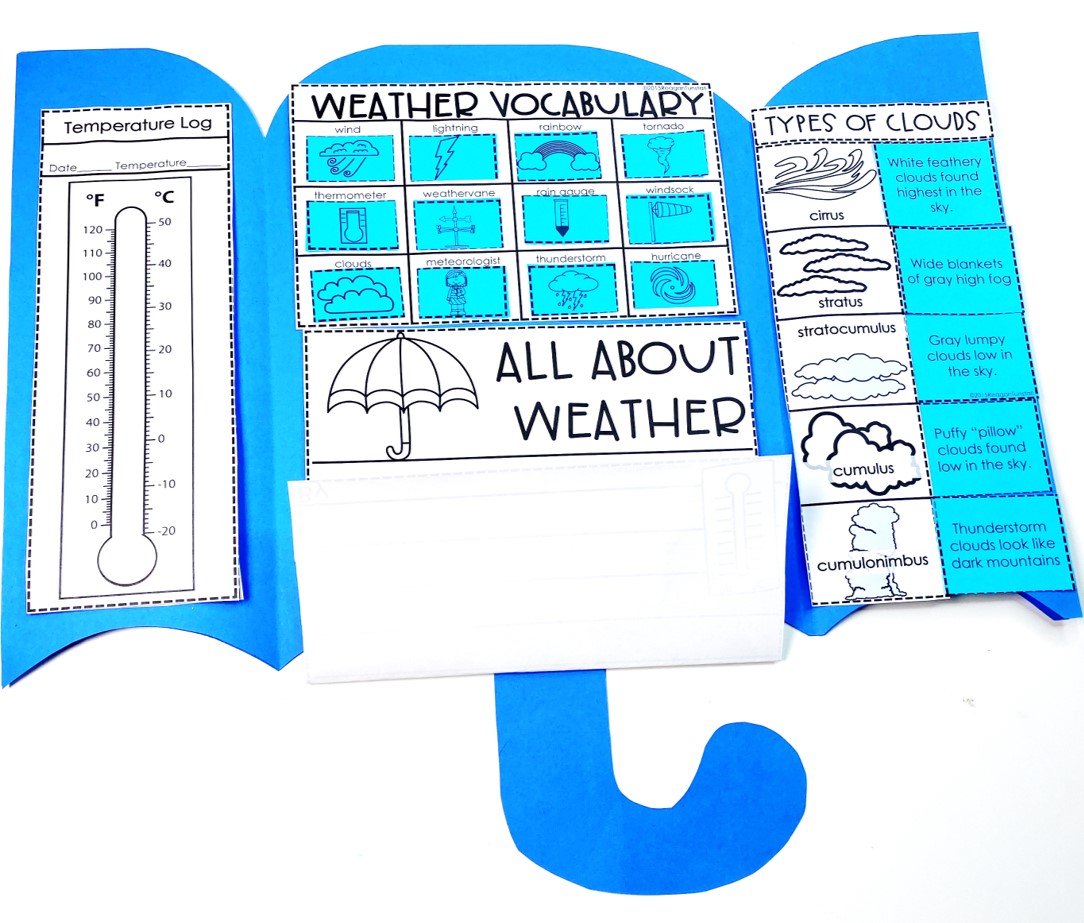 Temperature Log
Date______ Temperature______
°F °C
120
110
100
90
80
70
60
50
40
30
20
10
0
50
40
30
20
10
0
-10
-20
WEATHER VOCABULARY
wind lightning rainbow tornado
thermometer weathervane rain gauge windsock
clouds meteorologist thunderstorm hurricane
ALL ABOUT
WEATHER
TYPES OF CLOUDS
cirrus
White feathery
clouds found
highest in the
sky.
stratus
Wide blankets
of gray high fog
stratocumulus
Gray lumpy
clouds low in
the sky.
cumulus
Puffy “pillow”
clouds found
low in the sky.
cumulonimbus
Thunderstorm
clouds look like
dark mountains